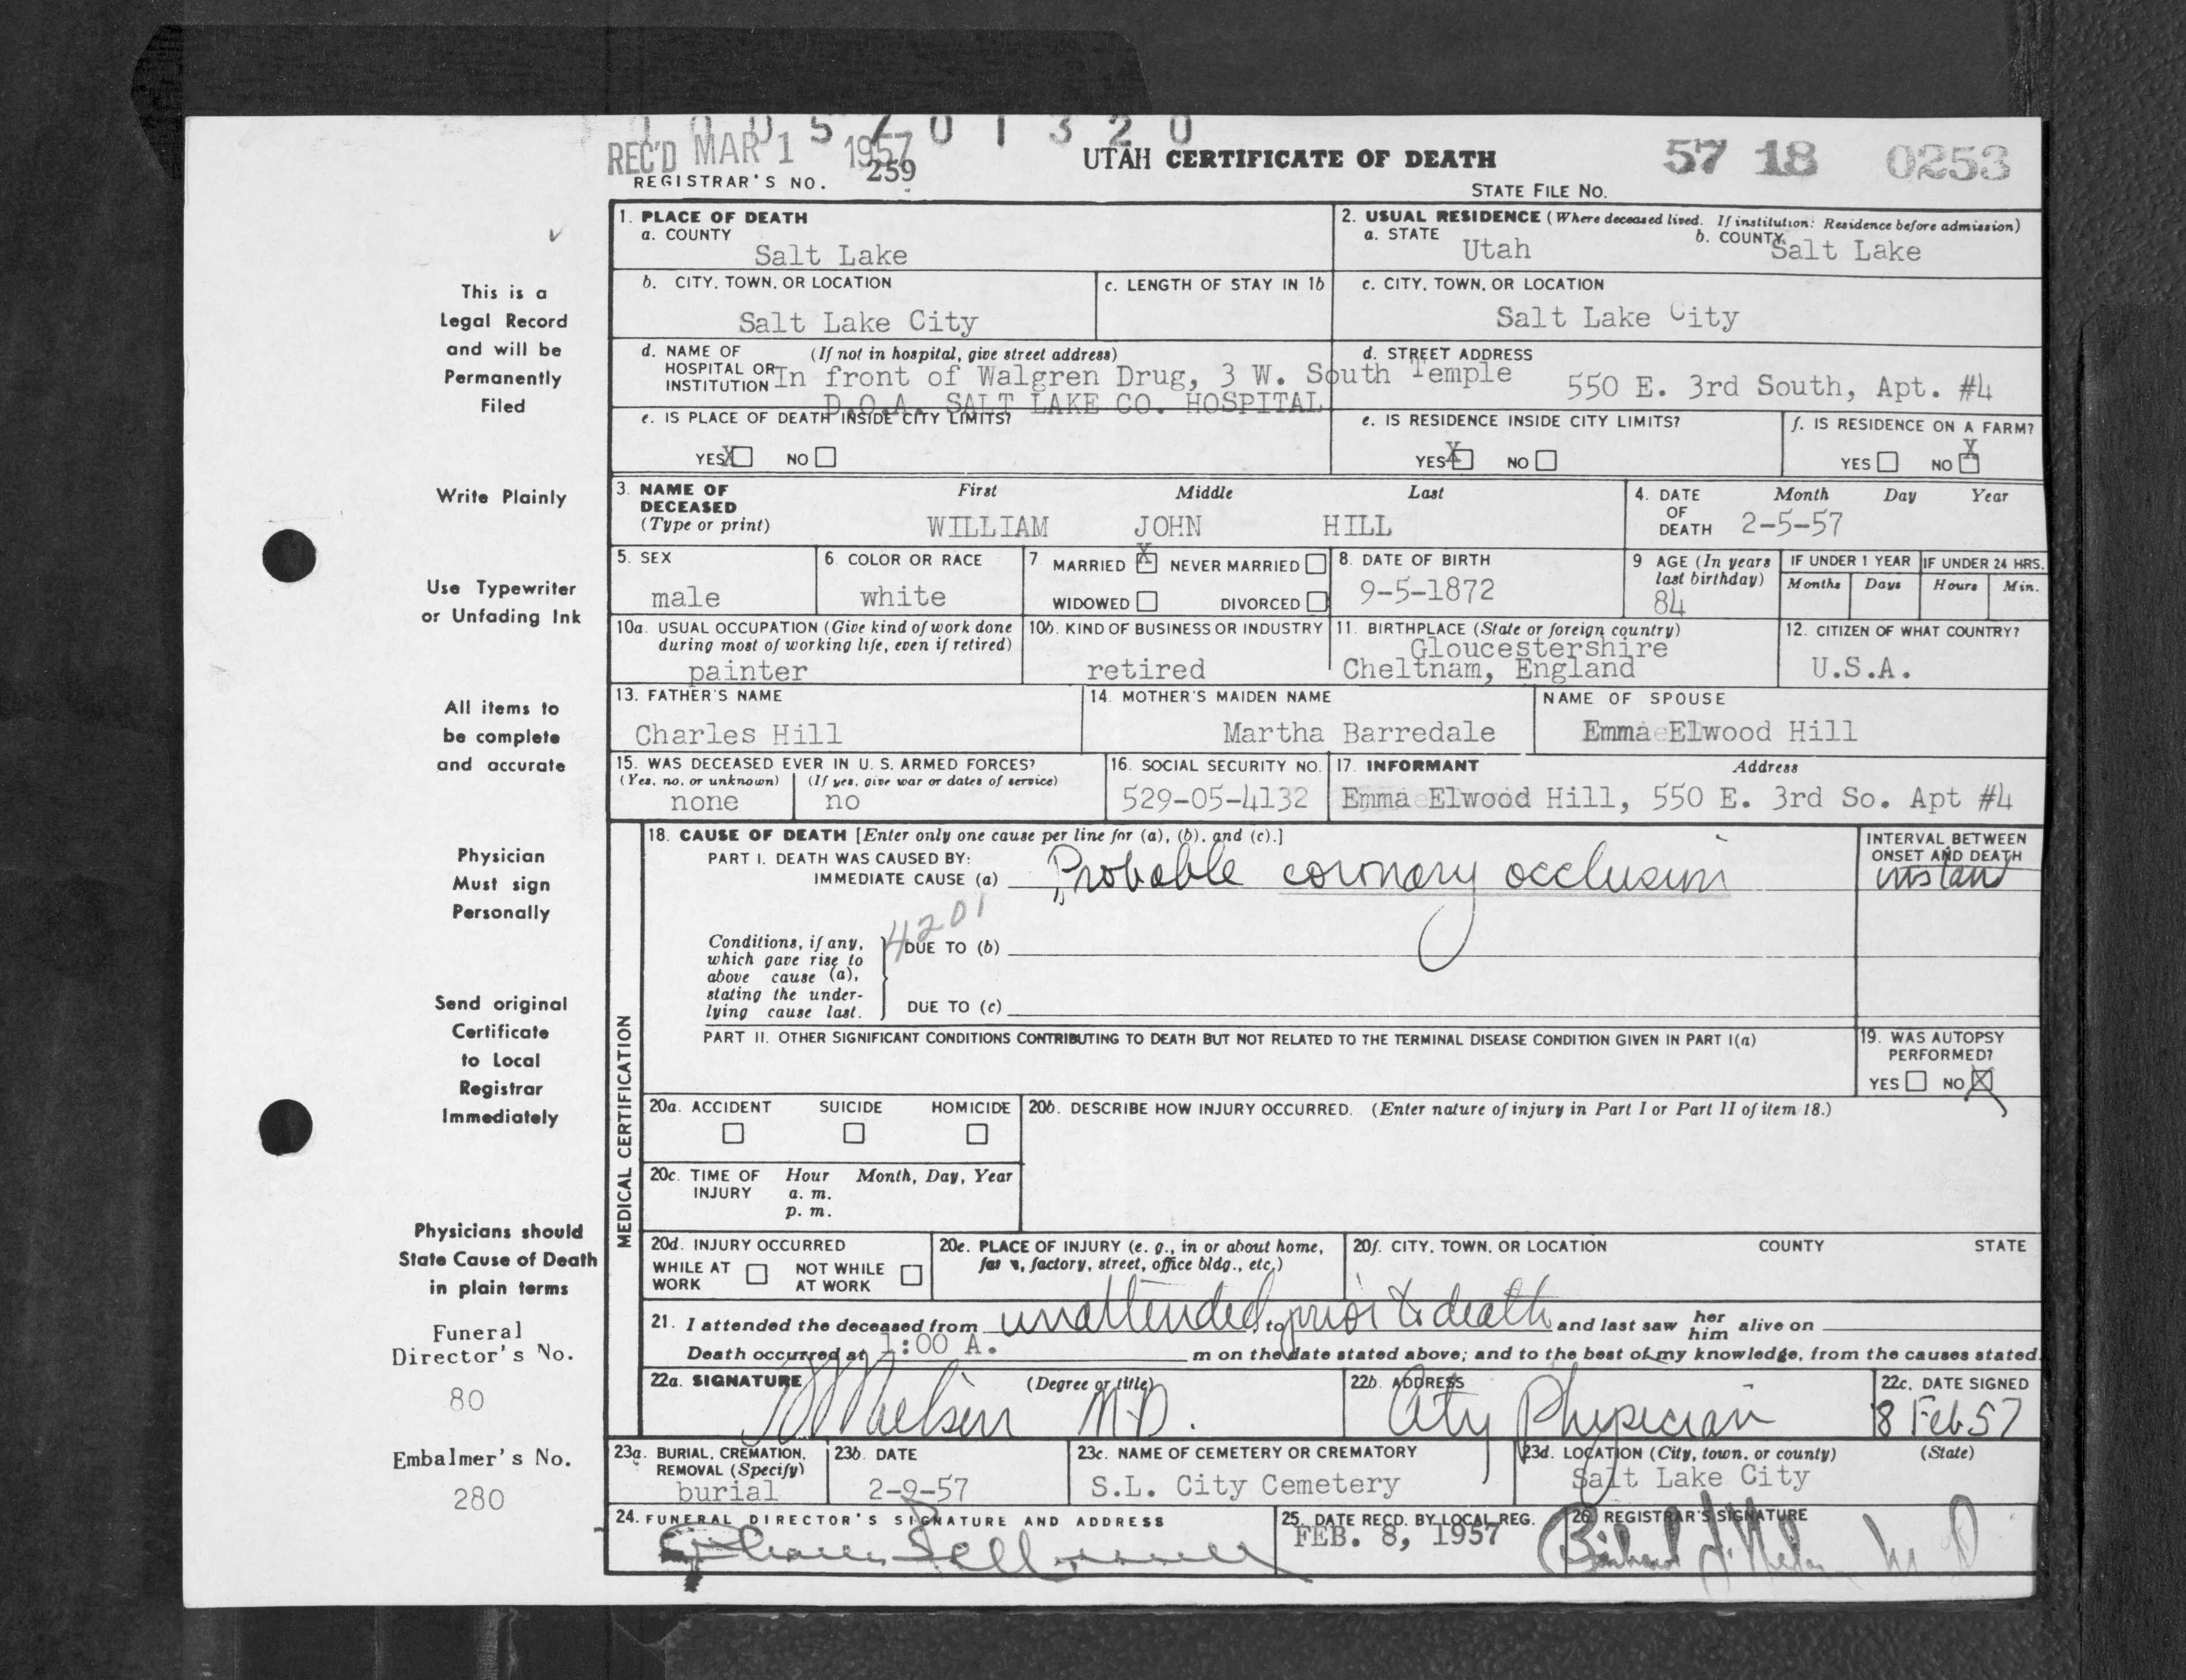 1 0 0 5 7 0 1 3 2 0
REC'D MAR 1 1957
REGISTRAR'S NO. 259
UTAH CERTIFICATE OF DEATH
57 18 0253
STATE FILE NO.
This is a
Legal Record
and will be
Permanently
Filed
Write Plainly
Use Typewriter
or Unfading Ink
All items to
be complete
and accurate
Physician
Must sign
Personally
Send original
Certificate
to Local
Registrar
Immediately
Physicians should
State Cause of Death
in plain terms
Funeral
Director's No.
80
Embalmer's No.
280
1. PLACE OF DEATH
a. COUNTY
Salt Lake
2. USUAL RESIDENCE (Where deceased lived. If institution: Residence before admission)
a. STATE Utah
b. COUNTY Salt Lake
b. CITY, TOWN, OR LOCATION
Salt Lake City
c. LENGTH OF STAY IN 1b
c. CITY, TOWN, OR LOCATION
Salt Lake City
d. NAME OF (If not in hospital, give street address)
HOSPITAL OR
INSTITUTION In front of Walgren Drug, 3 W. South Temple
D.O.A. SALT LAKE CO. HOSPITAL
d. STREET ADDRESS
550 E. 3rd South, Apt. #4
e. IS PLACE OF DEATH INSIDE CITY LIMITS?
YES X NO
e. IS RESIDENCE INSIDE CITY LIMITS?
YES X NO
f. IS RESIDENCE ON A FARM?
YES NO X
3. NAME OF
DECEASED
(Type or print)
First Middle Last
WILLIAM JOHN HILL
4. DATE
OF
DEATH
Month Day Year
2-5-57
5. SEX
male
6. COLOR OR RACE
white
7. MARRIED X NEVER MARRIED
WIDOWED DIVORCED
8. DATE OF BIRTH
9-5-1872
9 AGE (In years
last birthday)
84
IF UNDER 1 YEAR
Months Days
IF UNDER 24 HRS.
Hours Min.
10a. USUAL OCCUPATION (Give kind of work done
during most of working life, even if retired)
painter
10b. KIND OF BUSINESS OR INDUSTRY
retired
11. BIRTHPLACE (State or foreign country)
Gloucestershire
Cheltnam, England
12. CITIZEN OF WHAT COUNTRY?
U.S.A.
13. FATHER'S NAME
Charles Hill
14. MOTHER'S MAIDEN NAME
Martha Barredale
NAME OF SPOUSE
Emma Elwood Hill
15. WAS DECEASED EVER IN U. S. ARMED FORCES?
(Yes, no, or unknown) (If yes, give war or dates of service)
none no
16. SOCIAL SECURITY NO.
529-05-4132
17. INFORMANT Address
Emma Elwood Hill, 550 E. 3rd So. Apt #4
MEDICAL CERTIFICATION
18. CAUSE OF DEATH [Enter only one cause per line for (a), (b), and (c).]
PART I. DEATH WAS CAUSED BY:
IMMEDIATE CAUSE (a) Probable coronary occlusion
INTERVAL BETWEEN
ONSET AND DEATH
instant
4201
Conditions, if any,
which gave rise to
above cause (a),
stating the under-
lying cause last.
DUE TO (b)
DUE TO (c)
PART II. OTHER SIGNIFICANT CONDITIONS CONTRIBUTING TO DEATH BUT NOT RELATED TO THE TERMINAL DISEASE CONDITION GIVEN IN PART I(a)
19. WAS AUTOPSY
PERFORMED?
YES NO X
20a. ACCIDENT SUICIDE HOMICIDE
20b. DESCRIBE HOW INJURY OCCURRED. (Enter nature of injury in Part I or Part II of item 18.)
20c. TIME OF Hour Month, Day, Year
INJURY a. m.
p. m.
20d. INJURY OCCURRED
WHILE AT NOT WHILE
WORK AT WORK
20e. PLACE OF INJURY (e. g., in or about home,
farm, factory, street, office bldg., etc.)
20f. CITY, TOWN, OR LOCATION COUNTY STATE
21. I attended the deceased from unattended to prior to death and last saw her him alive on
Death occurred at 1:00 A. m on the date stated above; and to the best of my knowledge, from the causes stated.
22a. SIGNATURE (Degree or title)
Nielsen M.D.
22b. ADDRESS
City Physician
22c. DATE SIGNED
8 Feb 57
23a. BURIAL, CREMATION,
REMOVAL (Specify)
burial
23b. DATE
2-9-57
23c. NAME OF CEMETERY OR CREMATORY
S.L. City Cemetery
23d. LOCATION (City, town, or county) (State)
Salt Lake City
24. FUNERAL DIRECTOR'S SIGNATURE AND ADDRESS
25. DATE RECD. BY LOCAL REG.
FEB. 8, 1957
26. REGISTRAR'S SIGNATURE
M D